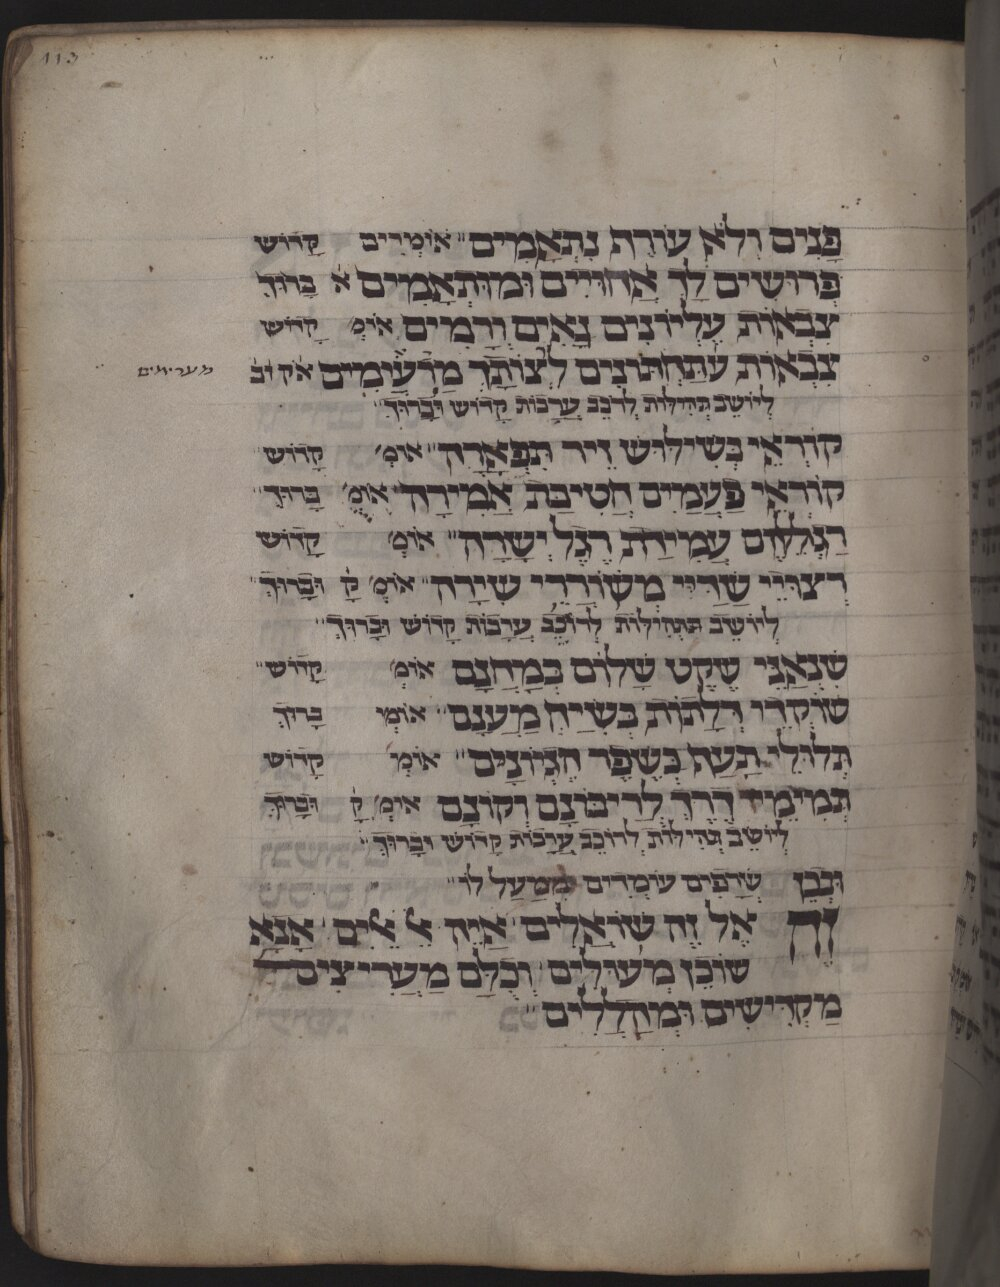 113
פָּנִים וְלֹא עוֹרֶת נִתְאָמִים אוֹמְרִים קָדוֹשׁ
פְּרוּשִׁים לַךְ אֲחוּיִים וּמוּתְאָמִים א בָּרוּךְ
צִבְאוֹת עֶלְיוֹנִים נָאִים וְרָמִים אוֹמְ קָדוֹשׁ
צִבְאוֹת לְצוֹתָךְ מַרְעִימִים
מערימים
לְיוֹשֵׁב תְּהִילּוֹת לְרוֹכֵב עֲרָבוֹת קָדוֹשׁ וּבָרוּךְ
קוֹרְאֵי בְּשִׁילּוּשׁ זֵיר תִּפְאָרָה אוֹמְ קָדוֹשׁ
קוֹרְאֵי פַּעֲמַיִם חֲטִיבַת אֲמִירָה אוֹמְ בָּרוּךְ
רַגְלֵיהֶם עֲמִידַת רֶגֶל יְשָׁרָה אוֹמְ קָדוֹשׁ
רְצוּיֵי שַׁדַּיי מְשׁוֹרְרֵי שִׁירָה אוֹמְ קָ וּבָרוּךְ
לְיוֹשֵׁב תְּהִילּוֹת לְרוֹכֵב עֲרָבוֹת קָדוֹשׁ וּבָרוּךְ
שִׁנְאַנֵּי שֶׁקֶט שָׁלוֹם בְּמַחֲנָם אוֹמְ קָדוֹשׁ
שׁוֹקְדֵי דְלָתוֹת בְּשִׂיחַ מַעֲנָם אוֹמְ בָּרוּךְ
תְּלוּלֵי תָעָה בְּשֶׁפֶר הֶגְיוֹנָים אוֹמְ קָדוֹשׁ
תְּמִימֵי דֶרֶךְ לְרִיבּוֹנָם וְקוֹנָם אוֹמְ קָ וּבָרוּךְ
לְיוֹשֵׁב תְּהִילּוֹת לְרוֹכֵב עֲרָבוֹת קָדוֹשׁ וּבָרוּךְ
וּבְכֵן שְׂרָפִים עוֹמְדִים מִמַּעַל לוֹ
זֶה אֶל זֶה שׁוֹאֲלִים אַיֵּה אֵל אֵלִים אָנָא
שׁוֹכֵן מְעוּלִּים וְכֻלָּם מַעֲרִיצִים
מַקְדִּישִׁים וּמְהַלְלִים